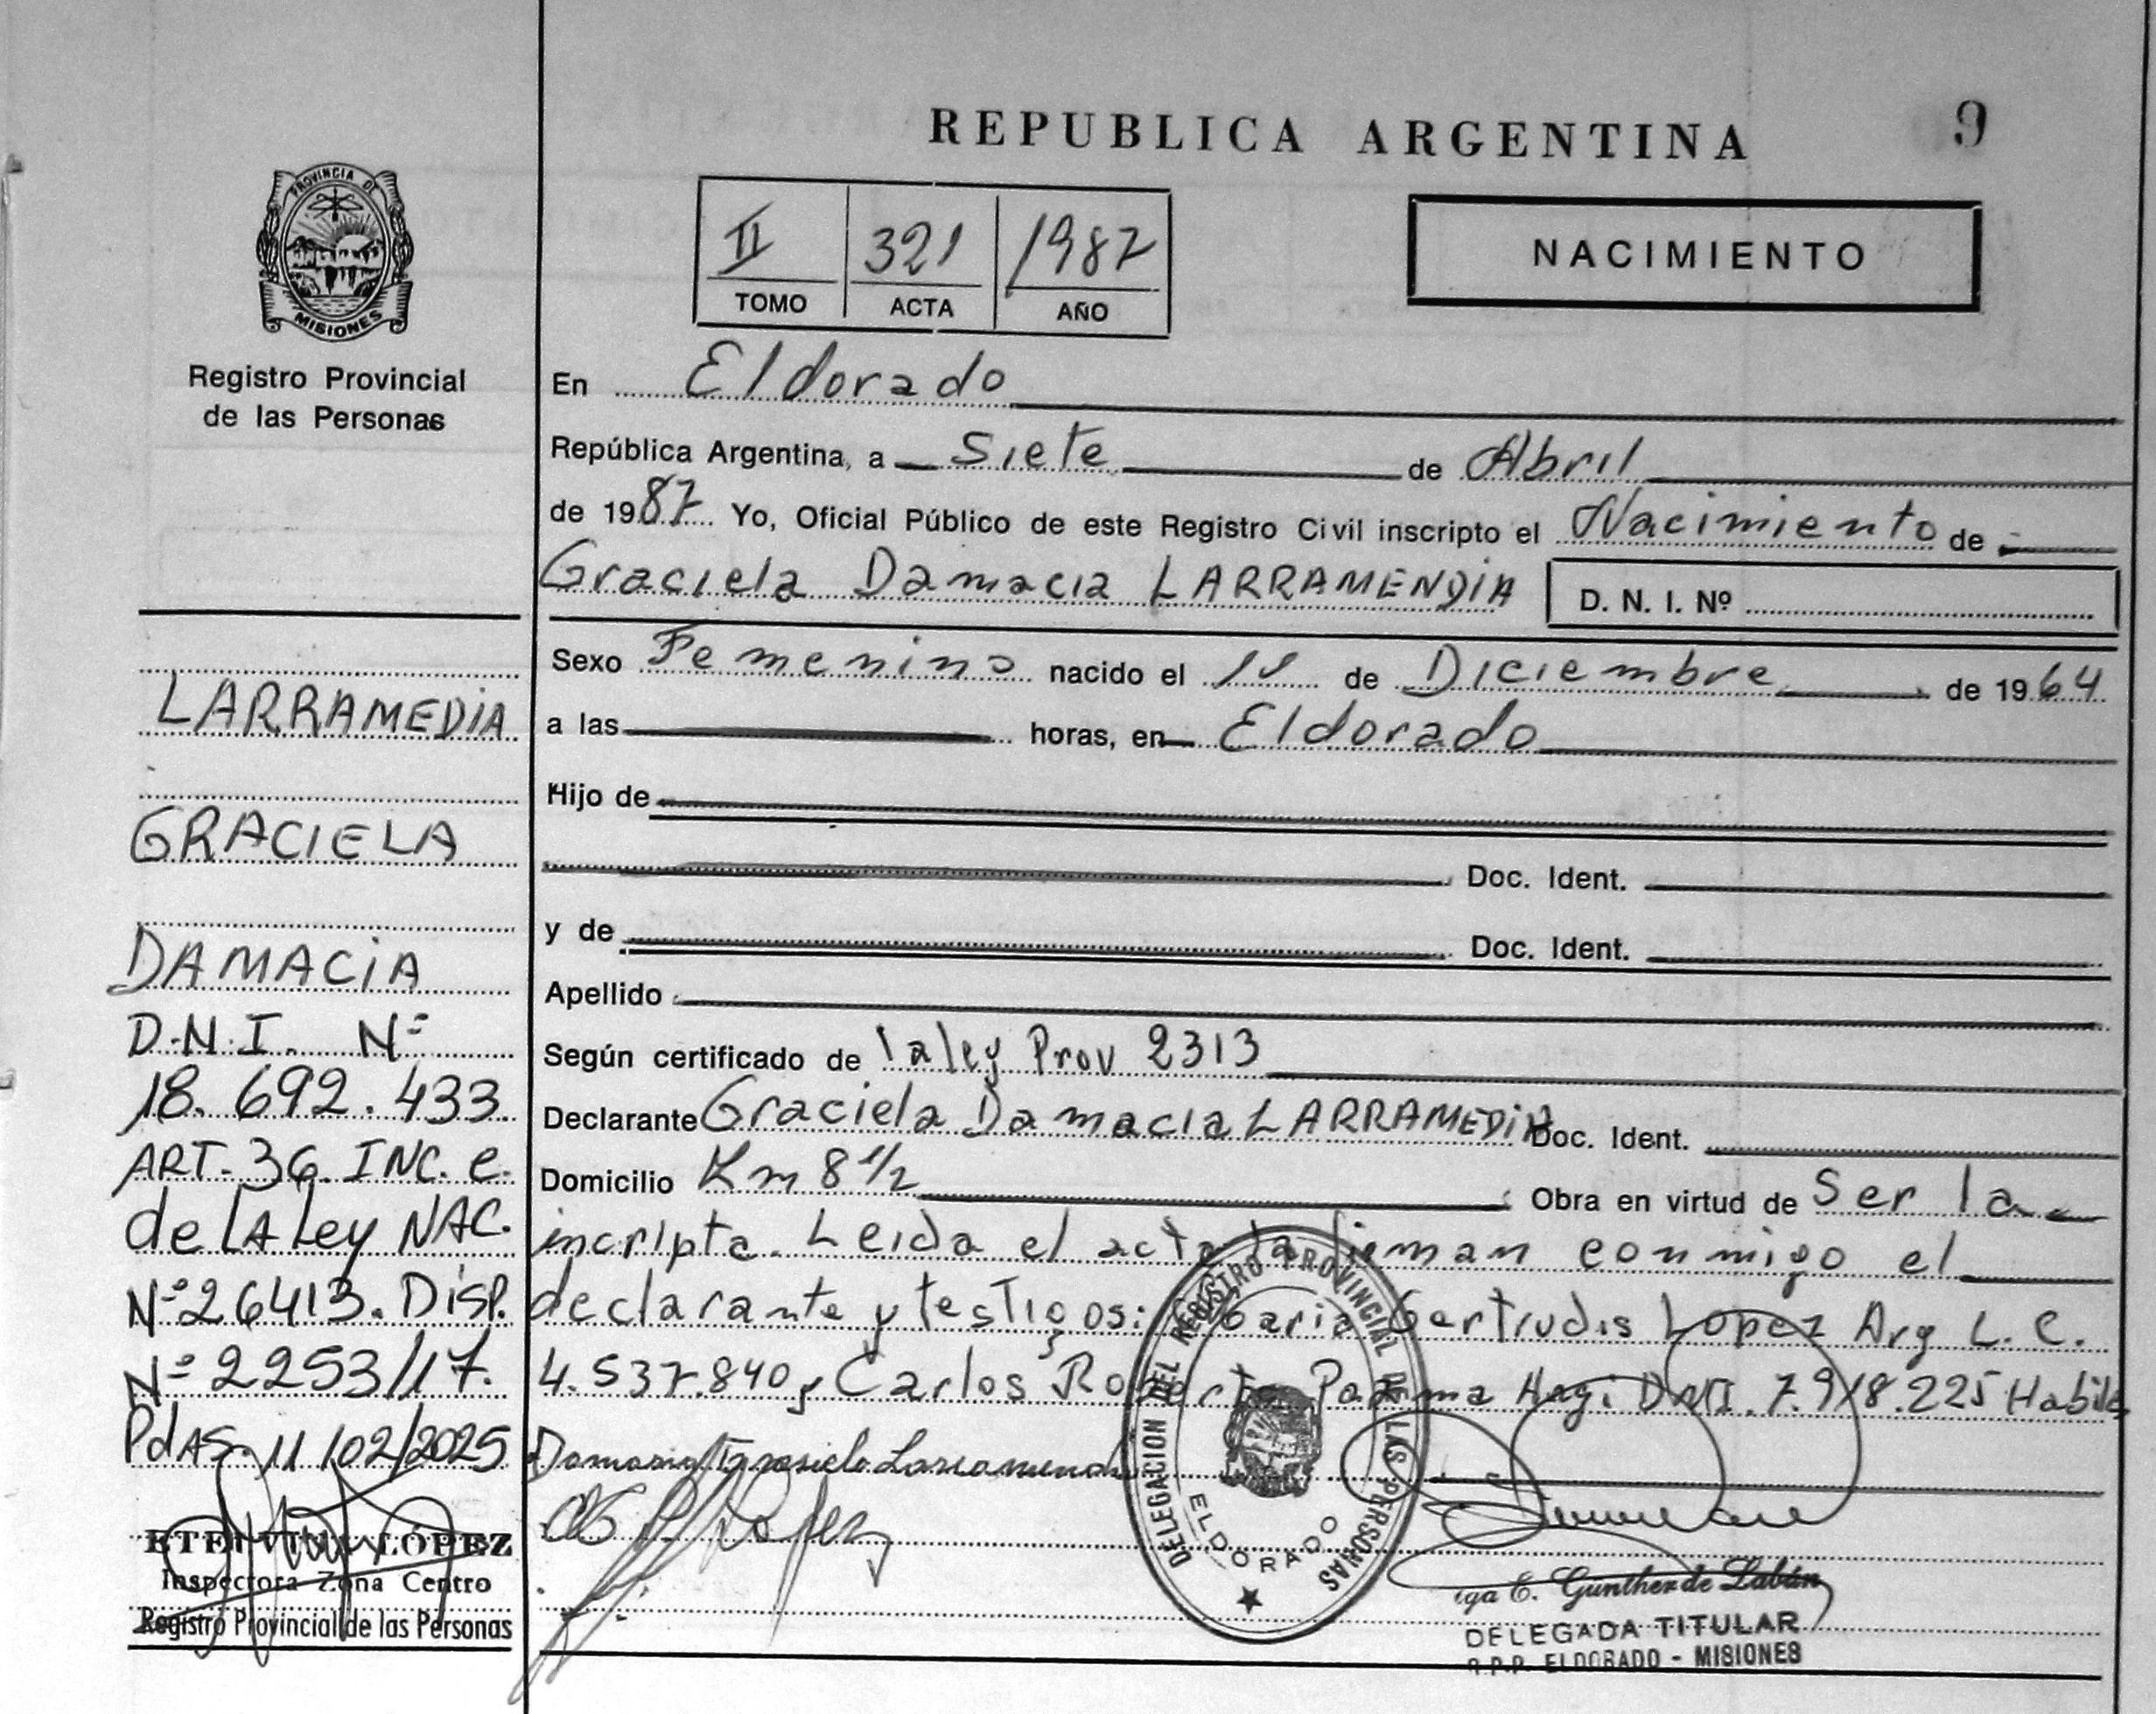 REPUBLICA ARGENTINA
9
PROVINCIA DE
MISIONES
Registro Provincial
de las Personas
II 321 1987
TOMO ACTA AÑO
NACIMIENTO
En Eldorado
República Argentina, a Siete de Abril
de 1987 Yo, Oficial Público de este Registro Civil inscripto el Nacimiento de
Graciela Damacia LARRAMENDIA D. N. I. Nº
Sexo Femenino nacido el 11 de Diciembre de 1964
a las horas, en Eldorado
Hijo de
Doc. Ident.
y de Doc. Ident.
Apellido
Según certificado de la ley Prov 2313
Declarante Graciela Damacia LARRAMEDIA Doc. Ident.
Domicilio Km 8 1/2 Obra en virtud de Ser la
incripta. Leida el acta la firman conmigo el
declarante y testigos: Maria Gertrudis Lopez Arg L. C.
4.537.840, Carlos Roberto Arg. DNI. 7.918.225 Habiles
Damasia Grasiela Larramendi
LARRAMEDIA
GRACIELA
DAMACIA
D.N.I. Nº
18.692.433
ART. 36. INC. C.
de LA Ley NAC.
Nº 26413. DISP.
Nº 2253/17.
PdAS. 11/02/2025
ETELVINA LÓPEZ
Inspectora Zona Centro
Registro Provincial de las Personas
DELEGACION DEL REGISTRO PROVINCIAL DE LAS PERSONAS
ELDORADO
E. Gunther de Labán
DELEGADA TITULAR
R.P.P. ELDORADO - MISIONES